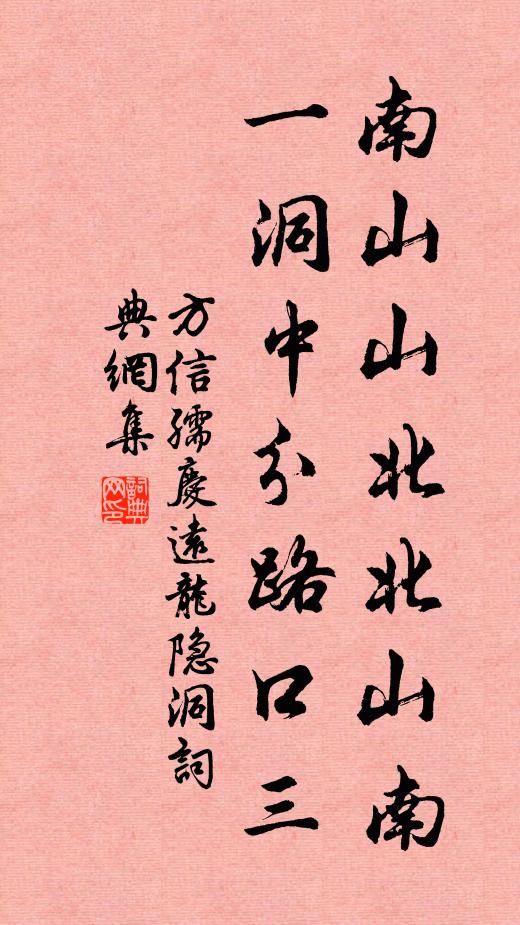 南山山北北山南
一洞中分路口三
方信孺慶遠龍隐洞詞
典網集
詞典網印